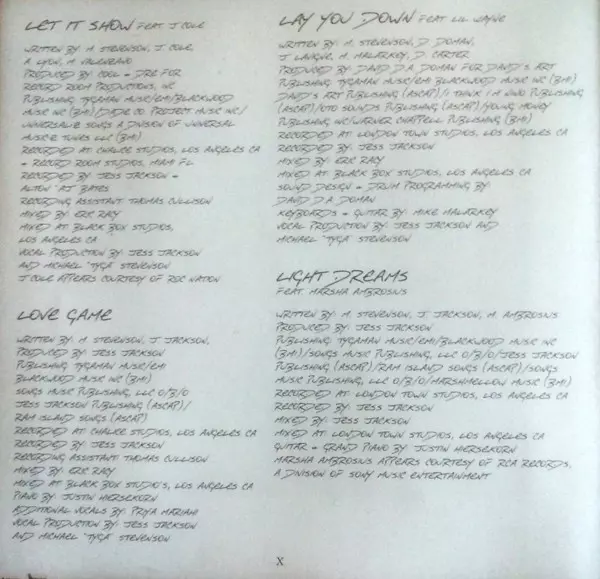 LET IT SHOW FEAT. J COLE
WRITTEN BY: M. STEVENSON, J. COLE,
A. LYON, M. VALENZANO
PRODUCED BY: COOL + DRE FOR
RECORD ROOM PRODUCTIONS, INC
PUBLISHING TYGAMAN MUSIC/EMI/BLACKWOOD
MUSIC INC (BMI)/DADE CO. PROJECT MUSIC INC/
UNIVERSAL/C SONGS A DIVISION OF UNIVERSAL
MUSIC TUNES LLC (BMI)
RECORDED AT: CHALICE STUDIOS, LOS ANGELES CA
+ RECORD ROOM STUDIOS, MIAMI FL
RECORDED BY: JESS JACKSON +
ALTON "AJ" BATES
RECORDING ASSISTANT: THOMAS CULLISON
MIXED BY: ERIC RACY
MIXED AT: BLACK BOX STUDIOS,
LOS ANGELES CA
VOCAL PRODUCTION BY: JESS JACKSON
AND MICHAEL "TYGA" STEVENSON
J COLE APPEARS COURTESY OF ROC NATION
LOVE GAME
WRITTEN BY: M. STEVENSON, J. JACKSON,
PRODUCED BY: JESS JACKSON
PUBLISHING TYGAMAN MUSIC/EMI
BLACKWOOD MUSIC INC (BMI)
SONGS MUSIC PUBLISHING, LLC O/B/O
JESS JACKSON PUBLISHING (ASCAP)/
RAM ISLAND SONGS (ASCAP)
RECORDED AT: CHALICE STUDIOS, LOS ANGELES CA
RECORDED BY: JESS JACKSON
RECORDING ASSISTANT: THOMAS CULLISON
MIXED BY: ERIC RACY
MIXED AT: BLACK BOX STUDIOS, LOS ANGELES CA
PIANO BY: JUSTIN HERGEKORN
ADDITIONAL VOCALS BY: PRIYA MARIAHI
VOCAL PRODUCTION BY: JESS JACKSON
AND MICHAEL "TYGA" STEVENSON
LAY YOU DOWN FEAT. LIL WAYNE
WRITTEN BY: M. STEVENSON, D. DOMAN,
J. LAIGNE, M. MALARKEY, D. CARTER
PRODUCED BY: DAVID D.A. DOMAN FOR DAVID'S ART
PUBLISHING TYGAMAN MUSIC/EMI BLACKWOOD MUSIC INC (BMI)
DAVID'S ART PUBLISHING (ASCAP)/I THINK I'M WHO PUBLISHING
(ASCAP)/OTO SOUNDS PUBLISHING (ASCAP)/YOUNG MONEY
PUBLISHING INC/WARNER CHAPPELL PUBLISHING (BMI)
RECORDED AT: LONDON TOWN STUDIOS, LOS ANGELES CA
RECORDED BY: JESS JACKSON
MIXED BY: ERIC RACY
MIXED AT: BLACK BOX STUDIOS, LOS ANGELES CA
SOUND DESIGN + DRUM PROGRAMMING BY:
DAVID D.A. DOMAN
KEYBOARDS + GUITAR BY: MIKE MALARKEY
VOCAL PRODUCTION BY: JESS JACKSON AND
MICHAEL "TYGA" STEVENSON
LIGHT DREAMS
FEAT. MARSHA AMBROSIUS
WRITTEN BY: M. STEVENSON, J. JACKSON, M. AMBROSIUS
PRODUCED BY: JESS JACKSON
PUBLISHING TYGAMAN MUSIC/EMI/BLACKWOOD MUSIC INC
(BMI)/SONGS MUSIC PUBLISHING, LLC O/B/O/JESS JACKSON
PUBLISHING (ASCAP)/RAM ISLAND SONGS (ASCAP)/SONGS
MUSIC PUBLISHING, LLC O/B/O/MARSHMELLOW MUSIC (BMI)
RECORDED AT: LONDON TOWN STUDIOS, LOS ANGELES CA
RECORDED BY: JESS JACKSON
MIXED BY: JESS JACKSON
MIXED AT: LONDON TOWN STUDIOS, LOS ANGELES CA
GUITAR + GRAND PIANO BY: JUSTIN HERGEKORN
MARSHA AMBROSIUS APPEARS COURTESY OF RCA RECORDS,
A DIVISION OF SONY MUSIC ENTERTAINMENT
X